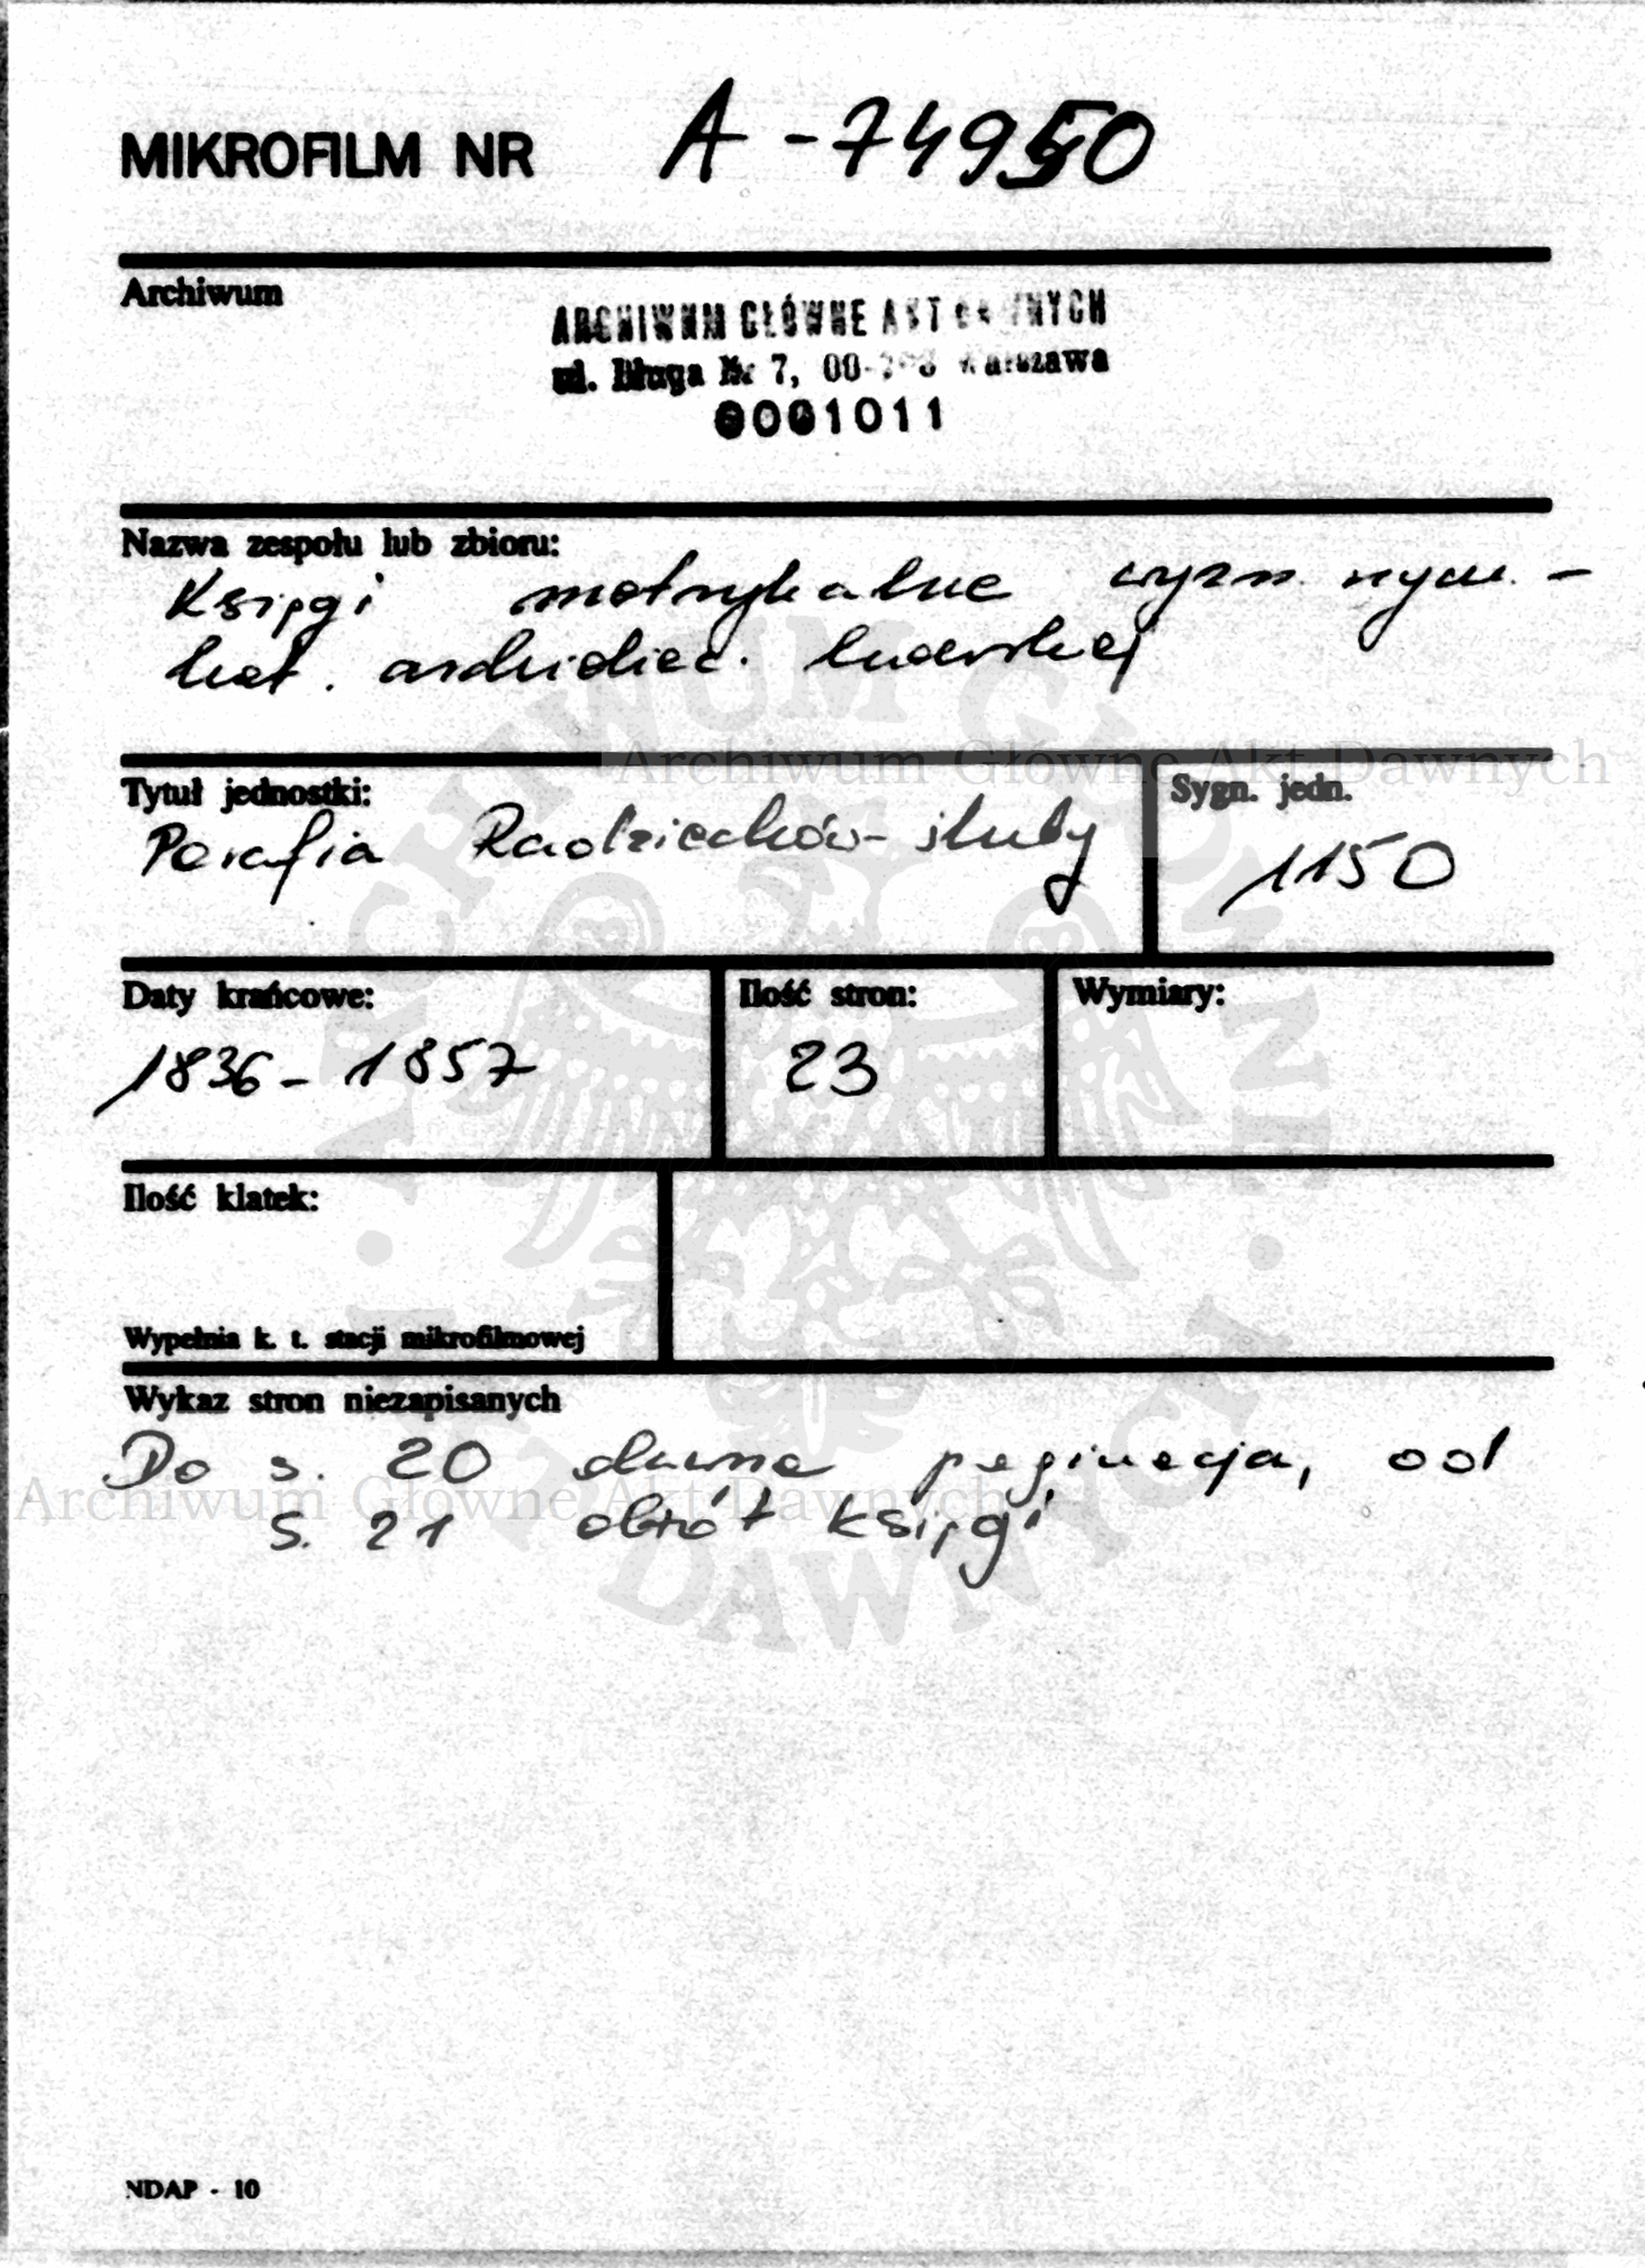 MIKROFILM NR A-74950
Archiwum
ARCHIWUM GŁÓWNE AKT DAWNYCH
ul. Długa Nr 7, 00- Warszawa
0001011
Nazwa zespołu lub zbioru:
Księgi metrykalne wyzn. rzym. -
kat. archidiec. lwowskiej
Archiwum Główne Akt Dawnych
Tytuł jednostki:
Sygn. jedn.
Parafia Radziechów - śluby
1150
Daty krańcowe:
Ilość stron:
Wymiary:
1836 - 1857
23
Ilość klatek:
Wypełnia k. t. stacji mikrofilmowej
Wykaz stron niezapisanych
Do s. 20 dawna paginacja, od
Archiwum Główne Akt Dawnych
s. 21 obrót księgi
ARCHIWUM GŁÓWNE AKT DAWNYCH
NDAP - 10